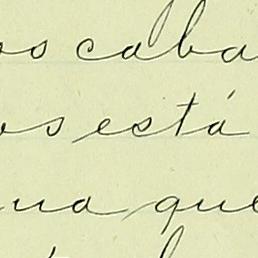 os caba
os está
na que